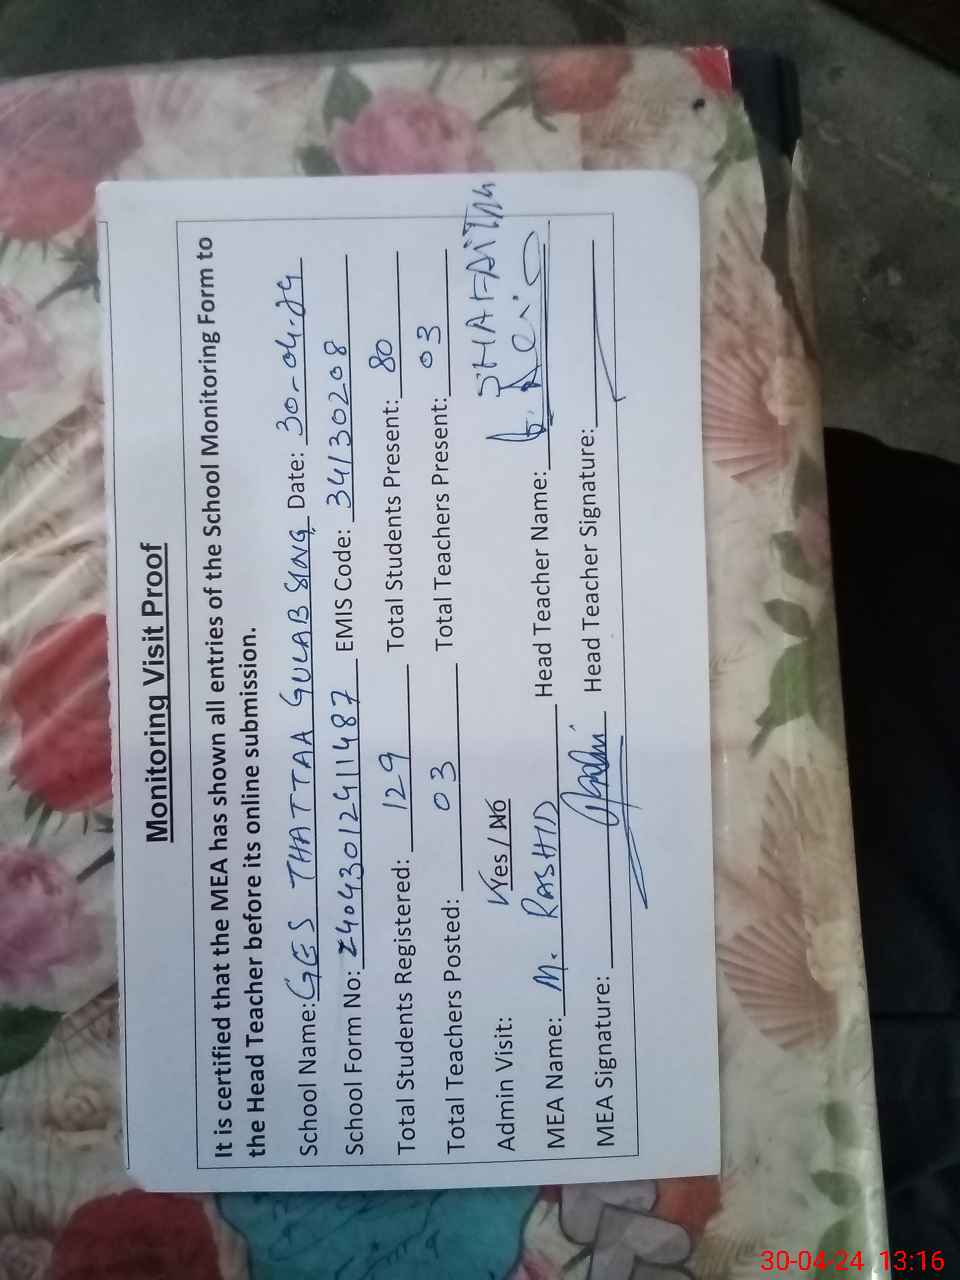 Monitoring Visit Proof
It is certified that the MEA has shown all entries of the School Monitoring Form to
the Head Teacher before its online submission.
School Name: GES THATTAA GULAB SING Date: 30-04-24
School Form No: 240430124911487 EMIS Code: 34130208
Total Students Registered: 129 Total Students Present: 80
Total Teachers Posted: 03 Total Teachers Present: 03
Admin Visit: Yes / No
MEA Name: M. RASHID Head Teacher Name:
MEA Signature: Head Teacher Signature:
30-04-24 13:16